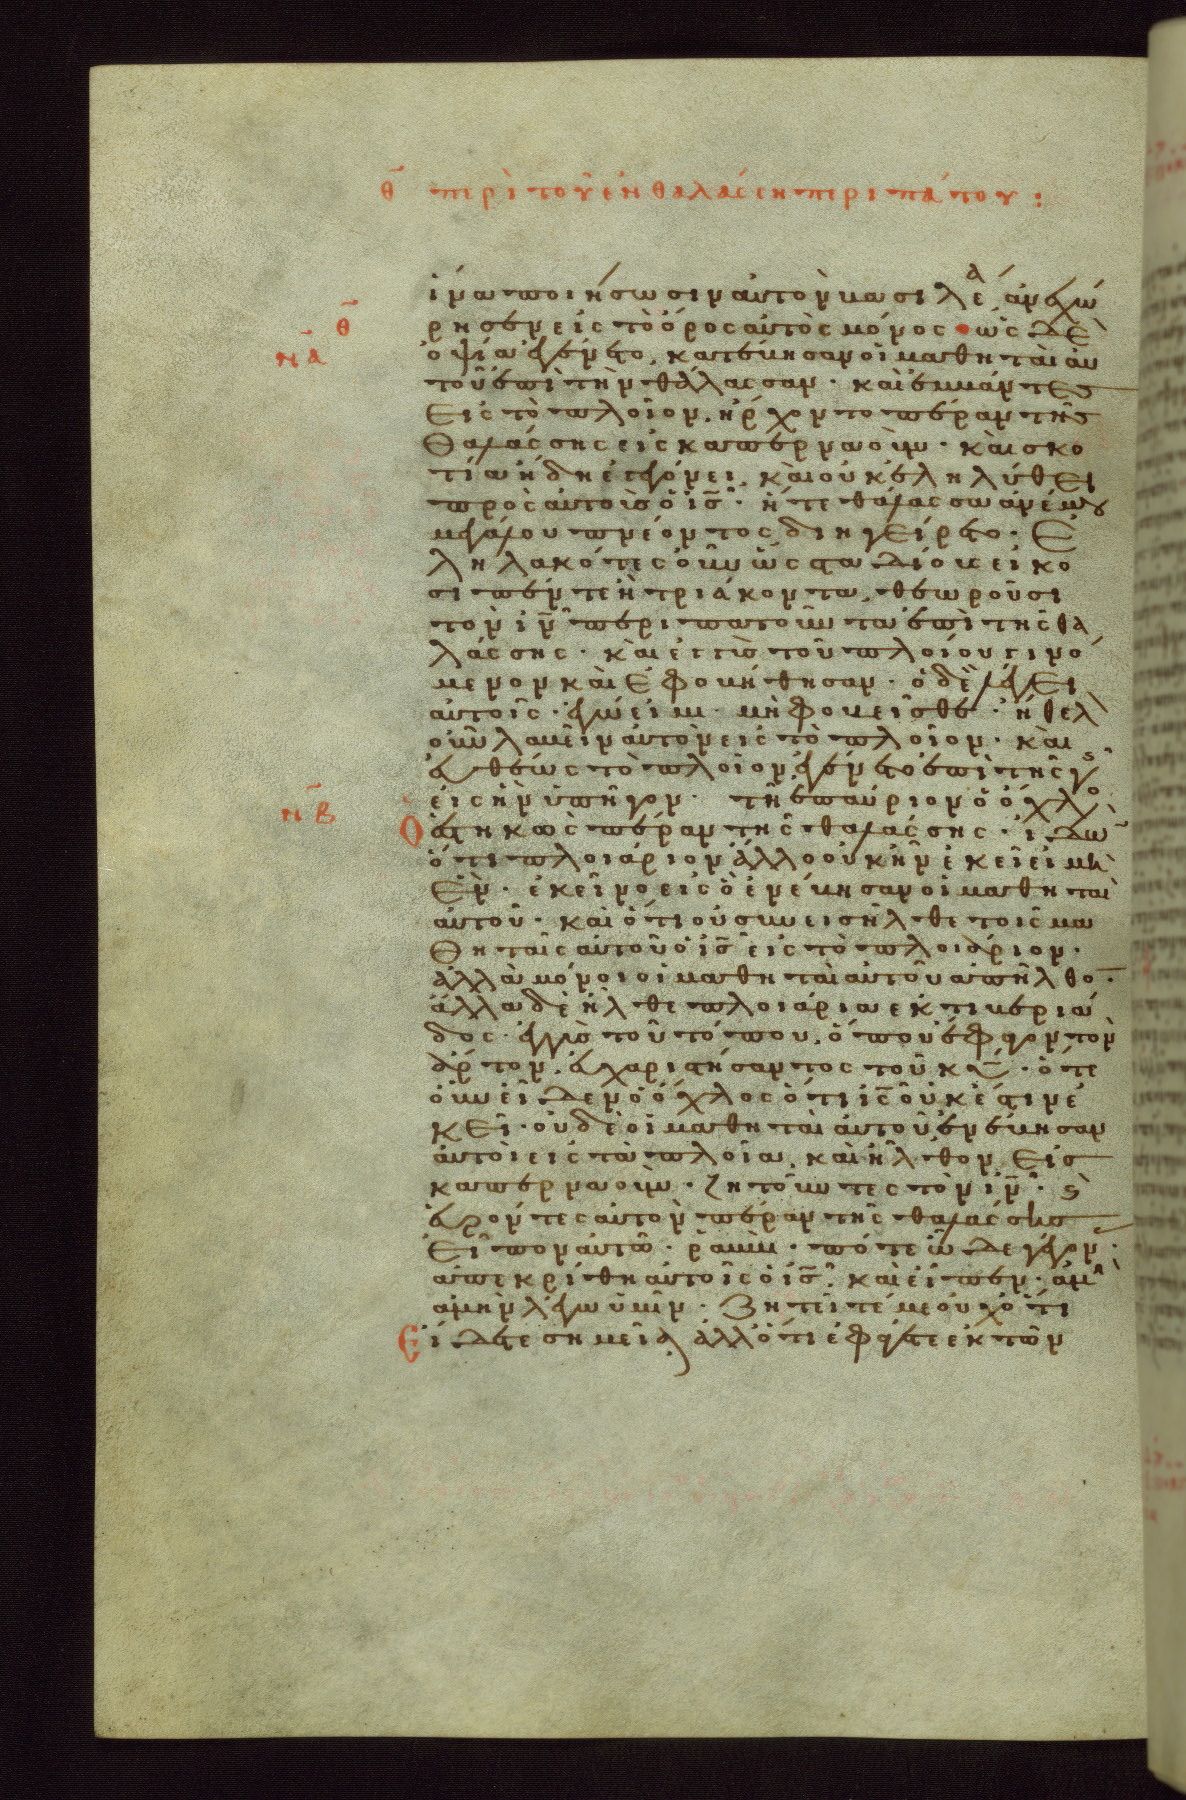 θ̅ περὶ τοῦ ἐν θαλάσση περιπάτου :
ἵνα ποιήσωσιν αὐτὸν βασιλέα, ἀνεχώ
θ̅
ρησεν εἰς τὸ ὄρος αὐτὸς μόνος · ὡς δὲ
να̅
ὀψία ἐγένετο, κατέβησαν οἱ μαθηταὶ αὐ
τοῦ ἐπὶ τὴν θάλασσαν · καὶ ἐμβάντες
εἰς τὸ πλοῖον, ἤρχοντο πέραν τῆς
θαλάσσης εἰς καπερναούμ · καὶ σκο
τία ἤδη ἐγεγόνει, καὶ οὐκ ἐληλύθει
πρὸς αὐτοὺς ὁ ις̅ · ἥ τε θάλασσα ἀνέμου
μεγάλου πνέοντος διηγείρετο · ἐ
ληλακότες οὖν ὡς σταδίους εἴκο
σι πέντε ἢ τριάκοντα, θεωροῦσι
τὸν ιν̅ περιπατοῦντα ἐπὶ τῆς θα
λάσσης · καὶ ἐγγὺς τοῦ πλοίου γινό
μενον καὶ ἐφοβήθησαν · ὁ δὲ λέγει
αὐτοῖς · ἐγώ εἰμι μὴ φοβεῖσθε · ἤθελον
οὖν λαβεῖν αὐτὸν εἰς τὸ πλοῖον · καὶ
εὐθέως τὸ πλοῖον ἐγένετο ἐπὶ τῆς γῆς
εἰς ἣν ὑπῆγον · τῆ ἐπαύριον ὁ ὄχλος
νβ̅
ὁ ἑστηκὼς πέραν τῆς θαλάσσης · ἰδὼν
ὅτι πλοιάριον ἄλλο οὐκ ἦν ἐκεῖ εἰ μὴ
ἕν · ἐκεῖνο εἰς ὃ ἐνέβησαν οἱ μαθηταὶ
αὐτοῦ · καὶ ὅτι οὐ συνεισῆλθε τοῖς μα
θηταῖς αὐτοῦ ὁ ις̅ εἰς τὸ πλοιάριον ·
ἀλλὰ μόνοι οἱ μαθηταὶ αὐτοῦ ἀπῆλθον ·
ἄλλα δὲ ἦλθε πλοιάρια ἐκ τιβεριά
δος · ἐγγὺς τοῦ τόπου, ὅπου ἔφαγον τὸν
ἄρτον, εὐχαριστήσαντος τοῦ κυ̅ · ὅτε
οὖν εἶδεν ὁ ὄχλος ὅτι ις̅ οὐκ ἔστιν ἐ
κεῖ · οὐδὲ οἱ μαθηταὶ αὐτοῦ ἐνέβησαν
αὐτοὶ εἰς τὰ πλοῖα, καὶ ἦλθον εἰς
καπερναούμ · ζητοῦντες τὸν ιν̅ · καὶ
εὑρόντες αὐτὸν πέραν τῆς θαλάσσης
εἶπον αὐτῶ · ῥαββὶ · πότε ὧδε γέγονας ·
ἀπεκρίθη αὐτοῖς ὁ ις̅, καὶ εἶπεν · ἀμὴν
ἀμὴν λέγω ὑμῖν · ζητεῖτέ με οὐχ ὅτι
εἴδετε σημεῖα, ἀλλ' ὅτι ἐφάγετε ἐκ τῶν